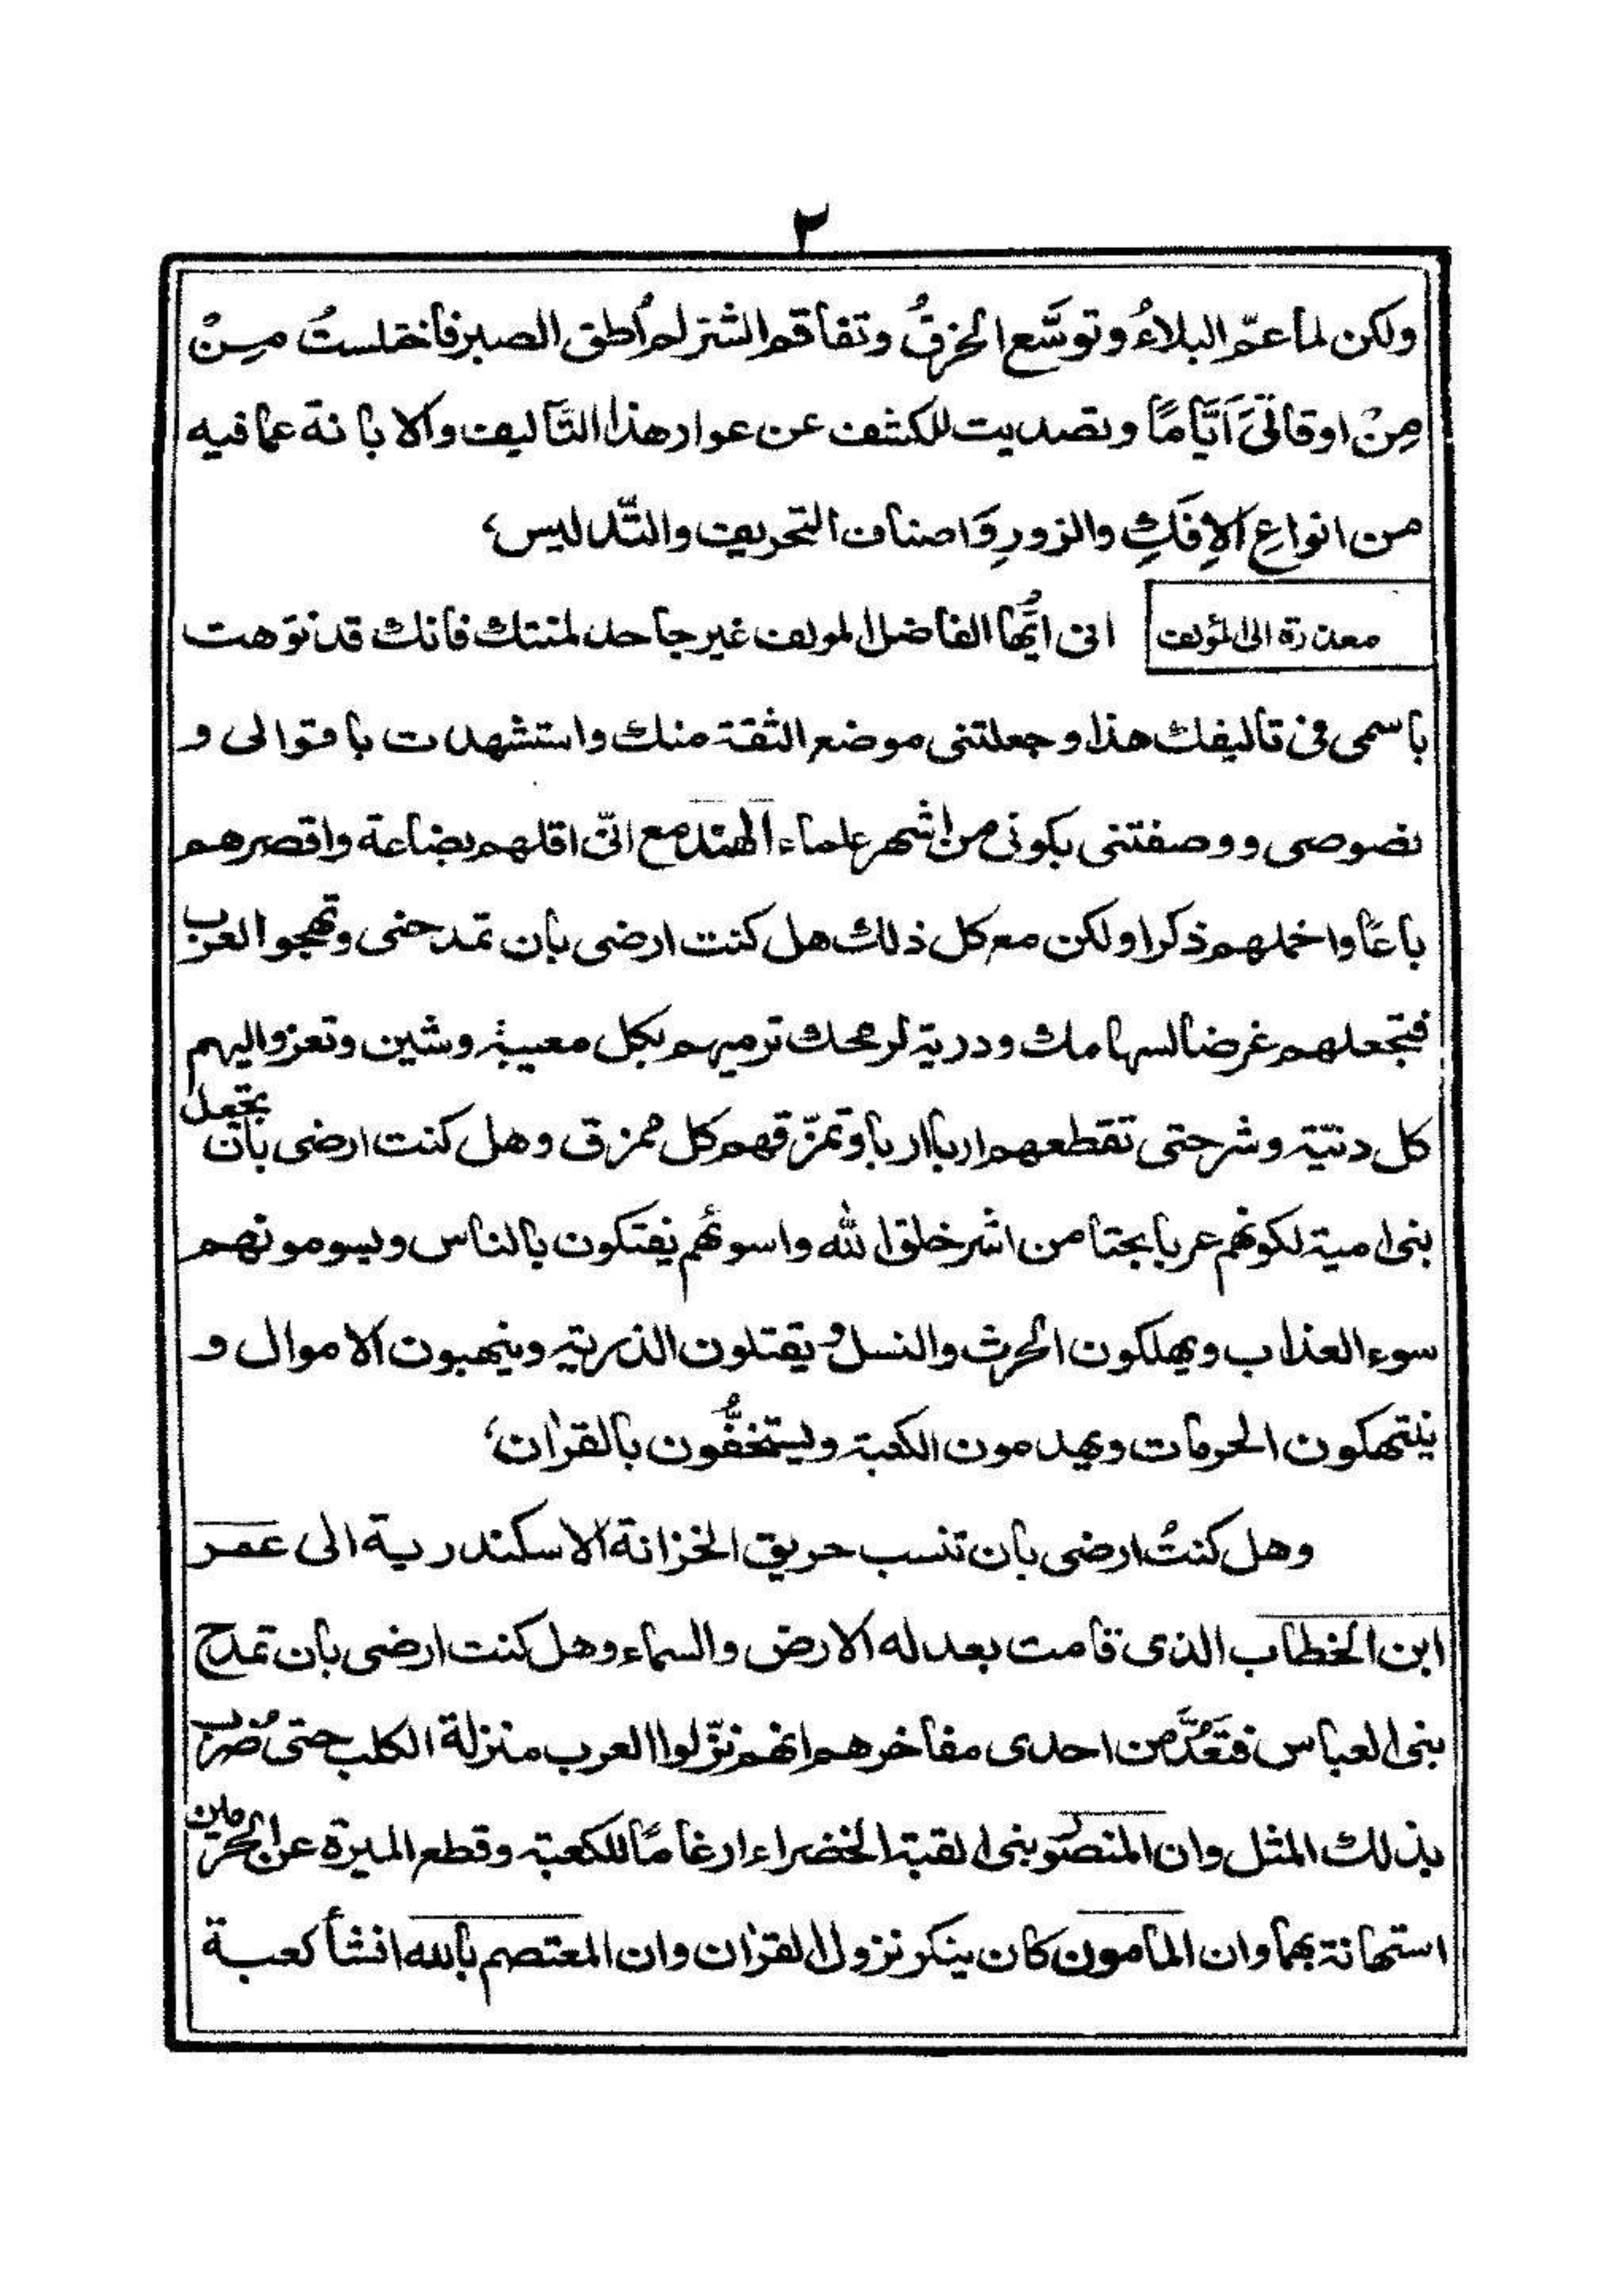 ٢
ولكن لما عمّ البلاءُ وتوسَّع الخرقُ وتفاقم الشر لم أُطق الصبر فاختلستُ مِنْ
مِنْ اوقاتى اَيَّامًا وتصديت للكشف عن عوار هذا التَّاليف والابانة عما فيه
من انواعِ الاِفكِ والزورِ وَاصناف التحريف والتّدليس،
معذرة الى المؤلف
انى ايُّها الفاضل المولف غير جاحد لمنتك فانك قد نوّهت
باسمى فى تاليفك هذا وجعلتنى موضع الثقة منك واستشهدت باقوالى و
نصوصى ووصفتنى بكونى من اشهر علماء الهند مع انّى اقلهم بضاعة واقصرهم
باعًا واخملهم ذكرا ولكن مع كل ذلك هل كنت ارضى بأن تمدحنى وتهجو العرب
فتجعلهم غرضا لسهامك ودرية لرمحك ترميهم بكل معيبة وشين وتعزو اليهم
كل دنيّة وشر حتى تقطعهم اربا اربا وتمزّقهم كل ممزق وهل كنت ارضى بأن تجعل
بنى امية لكونهم عربا بحتا من اشر خلق الله واسوئهم يفتكون بالناس ويسومونهم
سوء العذاب ويهلكون الحرث والنسل و يقتلون الذرية وينهبون الاموال و
ينتهكون الحرمات ويهدمون الكعبة ويستخفُّون بالقرٰان،
وهل كنتُ ارضى بأن تنسب حريق الخزانة الاسكندرية الى عمر
ابن الخطاب الذى قامت بعدله الارض والسماء وهل كنت ارضى بان تمدح
بنى العباس فتَعُدَّ من احدى مفاخرهم انهم نزّلوا العرب منزلة الكلب حتى ضُرب
بذلك المثل وان المنصور بنى القبة الخضراء ارغامًا للكعبة وقطع الميرة عن الحرمين
استهانة بهما وان المامون كان ينكر نزول القرٰان وان المعتصم بالله انشأ كعبة